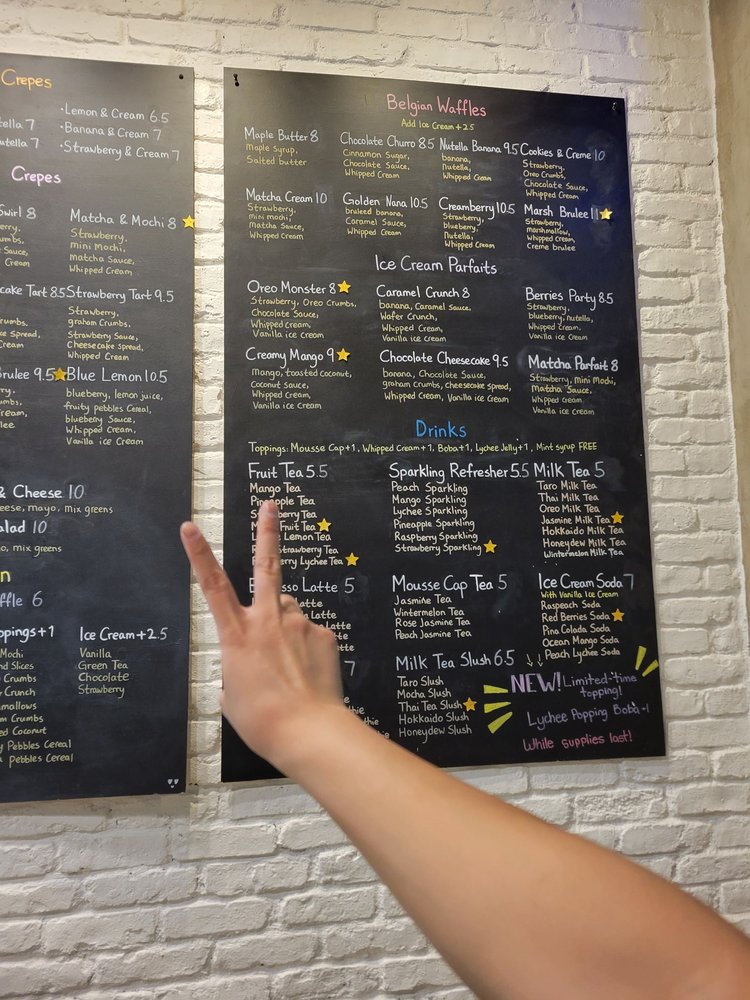 Crepes
Lemon & Cream 6.5
Banana & Cream 7
Strawberry & Cream 7
Crepes
Matcha & Mochi 8
Strawberry,
mini Mochi,
matcha Sauce,
Whipped Cream
Strawberry Tart 9.5
Strawberry,
graham Crumbs,
Strawberry Sauce,
Cheesecake Spread,
Whipped Cream
Blue Lemon 10.5
blueberry, lemon juice,
fruity pebbles Cereal,
blueberry Sauce,
Whipped Cream,
Vanilla ice Cream
& Cheese 10
cheese, mayo, mix greens
10
mix greens
6
+1
Mochi
Slices
Crumbs
Crunch
Crumbs
Coconut
Pebbles Cereal
Pebbles Cereal
Ice Cream +2.5
Vanilla
Green Tea
Chocolate
Strawberry
Belgian Waffles
Add Ice Cream +2.5
Maple Butter 8
Maple Syrup,
Salted butter
Chocolate Churro 8.5
Cinnamon Sugar,
Chocolate Sauce,
Whipped Cream
Nutella Banana 9.5
banana,
nutella,
Whipped Cream
Cookies & Creme 10
Strawberry,
Oreo Crumbs,
Chocolate Sauce,
Whipped Cream
Matcha Cream 10
Strawberry,
mini mochi,
matcha Sauce,
Whipped Cream
Golden Nana 10.5
bruleed banana,
Caramel Sauce,
Whipped Cream
Creamberry 10.5
Strawberry,
blueberry,
nutella,
Whipped Cream
Marsh Brulee 11
Strawberry,
marshmallow,
Whipped Cream
Creme brulee
Ice Cream Parfaits
Oreo Monster 8
Strawberry, Oreo Crumbs,
Chocolate Sauce,
Whipped Cream,
Vanilla ice Cream
Caramel Crunch 8
banana, Caramel Sauce,
Wafer Crunch,
Whipped Cream,
Vanilla ice Cream
Berries Party 8.5
Strawberry,
blueberry, nutella,
Whipped Cream,
Vanilla ice Cream
Creamy Mango 9
mango, toasted coconut,
Coconut Sauce,
Whipped Cream,
Vanilla ice Cream
Chocolate Cheesecake 9.5
banana, Chocolate Sauce,
graham Crumbs, Cheesecake Spread,
Whipped Cream, Vanilla ice Cream
Matcha Parfait 8
Strawberry, Mini Mochi,
Matcha Sauce,
Whipped Cream,
Vanilla ice Cream
Drinks
Toppings: Mousse Cap+1, Whipped Cream+1, Boba+1, Lychee Jelly+1, Mint syrup FREE
Fruit Tea 5.5
Mango Tea
Pineapple Tea
Tea
Fruit Tea
Tea
Strawberry Tea
Lychee Tea
Sparkling Refresher 5.5
Peach Sparkling
Mango Sparkling
Lychee Sparkling
Pineapple Sparkling
Raspberry Sparkling
Strawberry Sparkling
Milk Tea 5
Taro Milk Tea
Thai Milk Tea
Oreo Milk Tea
Jasmine Milk Tea
Hokkaido Milk Tea
Honeydew Milk Tea
Wintermelon Milk Tea
Latte 5
Latte
Mousse Cap Tea 5
Jasmine Tea
Wintermelon Tea
Rose Jasmine Tea
Peach Jasmine Tea
Ice Cream Soda 7
With Vanilla Ice Cream
Raspeach Soda
Red Berries Soda
Pina Colada Soda
Ocean Mango Soda
Peach Lychee Soda
7
Milk Tea Slush 6.5
Taro Slush
Mocha Slush
Thai Tea Slush
Hokkaido Slush
Honeydew Slush
NEW! Limited-time
topping!
Lychee Popping Boba +1
While supplies last!